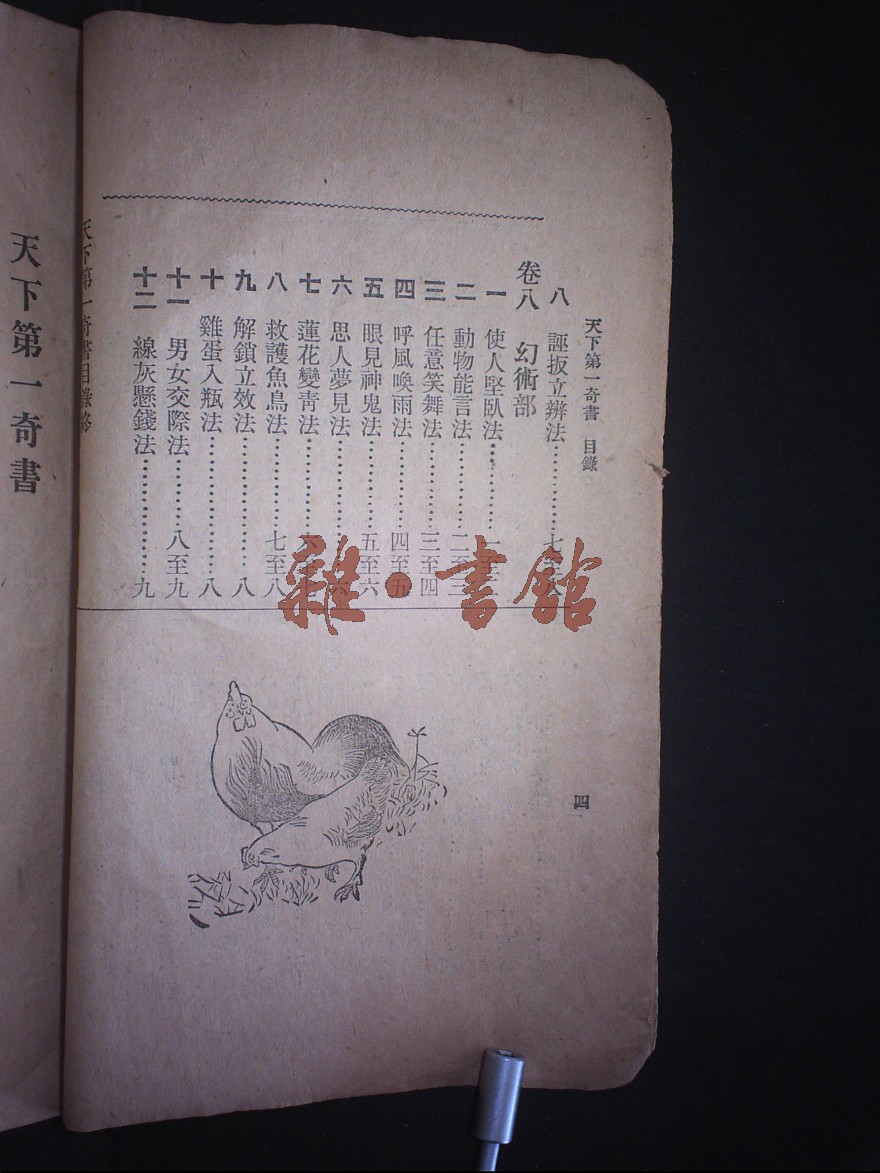 天下第一奇書 目錄
八 誣扳立辨法……………七至八
卷八 幻術部
一 使人堅臥法……………一至二
二 動物能言法……………二至三
三 任意笑舞法……………三至四
四 呼風喚雨法……………四至五
五 眼見神鬼法……………五至六
六 思人夢見法……………六
七 蓮花變靑法……………六
八 救護魚鳥法……………七至八
九 解鎖立效法……………八
十 雞蛋入瓶法……………八
十一 男女交際法……………八至九
十二 線灰懸錢法……………九
天下第一奇書目錄終
四
天下第一奇書
雜·書館